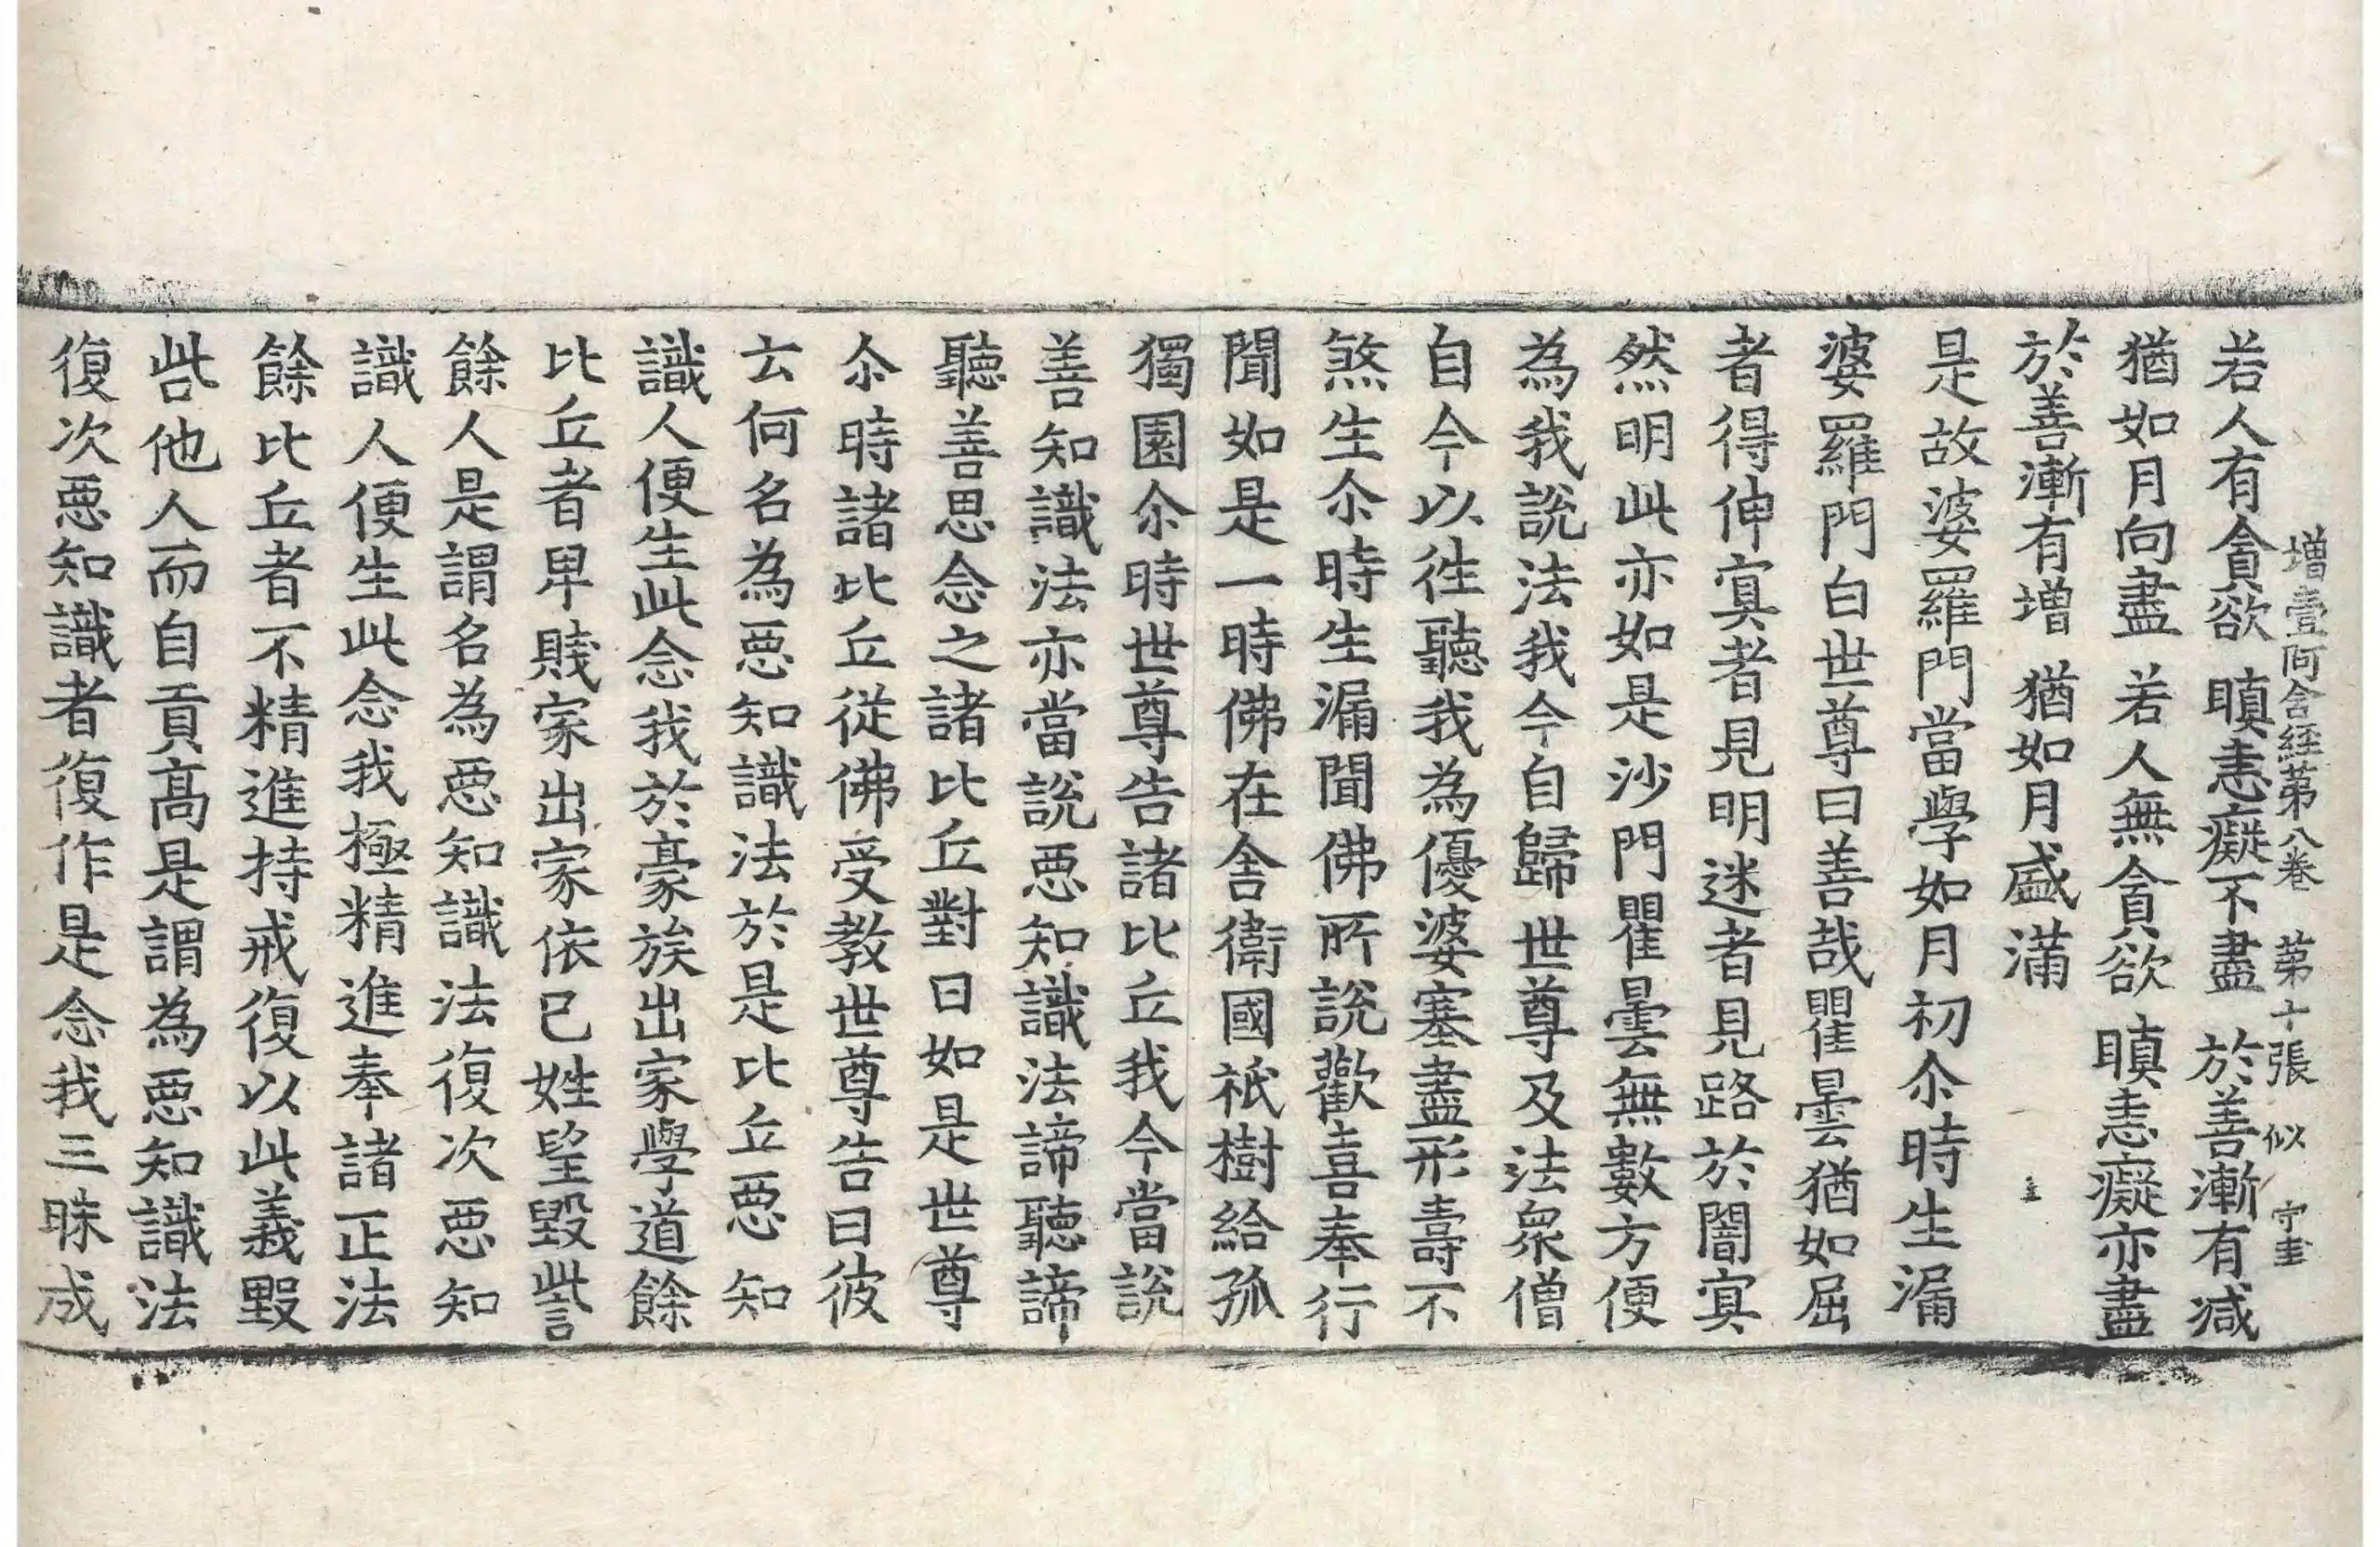 増壹阿含経苐八巻 苐十張 似 守圭
若人有貪欲 瞋恚癡不盡 於善漸有减
猶如月向盡 若人無貪欲 瞋恚癡亦盡
於善漸有增 猶如月盛滿
是故婆羅門當學如月初尒時生漏
婆羅門白世尊曰善哉瞿曇猶如屈
者得伸寘者見明迷者見路於闇寘
然明此亦如是沙門瞿曇無數方便
為我說法我今自歸世尊及法衆僧
自今以徃聽我為優婆塞盡形壽不
煞生尒時生漏聞佛所說歡喜奉行
聞如是一時佛在舍衛國祇樹給孤
獨園尒時世尊告諸比丘我今當說
善知識法亦當說惡知識法諦聽諦
聽善思念之諸比丘對曰如是世尊
尒時諸比丘從佛受教世尊告曰彼
云何名為惡知識法於是比丘惡知
識人便生此念我於豪族出家學道餘
比丘者卑賤家出家依已姓望毀訾
餘人是謂名為惡知識法復次惡知
識人便生此念我極精進奉諸正法
餘比丘者不精進持戒復以此義毀
呰他人而自貢高是謂為惡知識法
復次惡知識者復作是念我三昧成